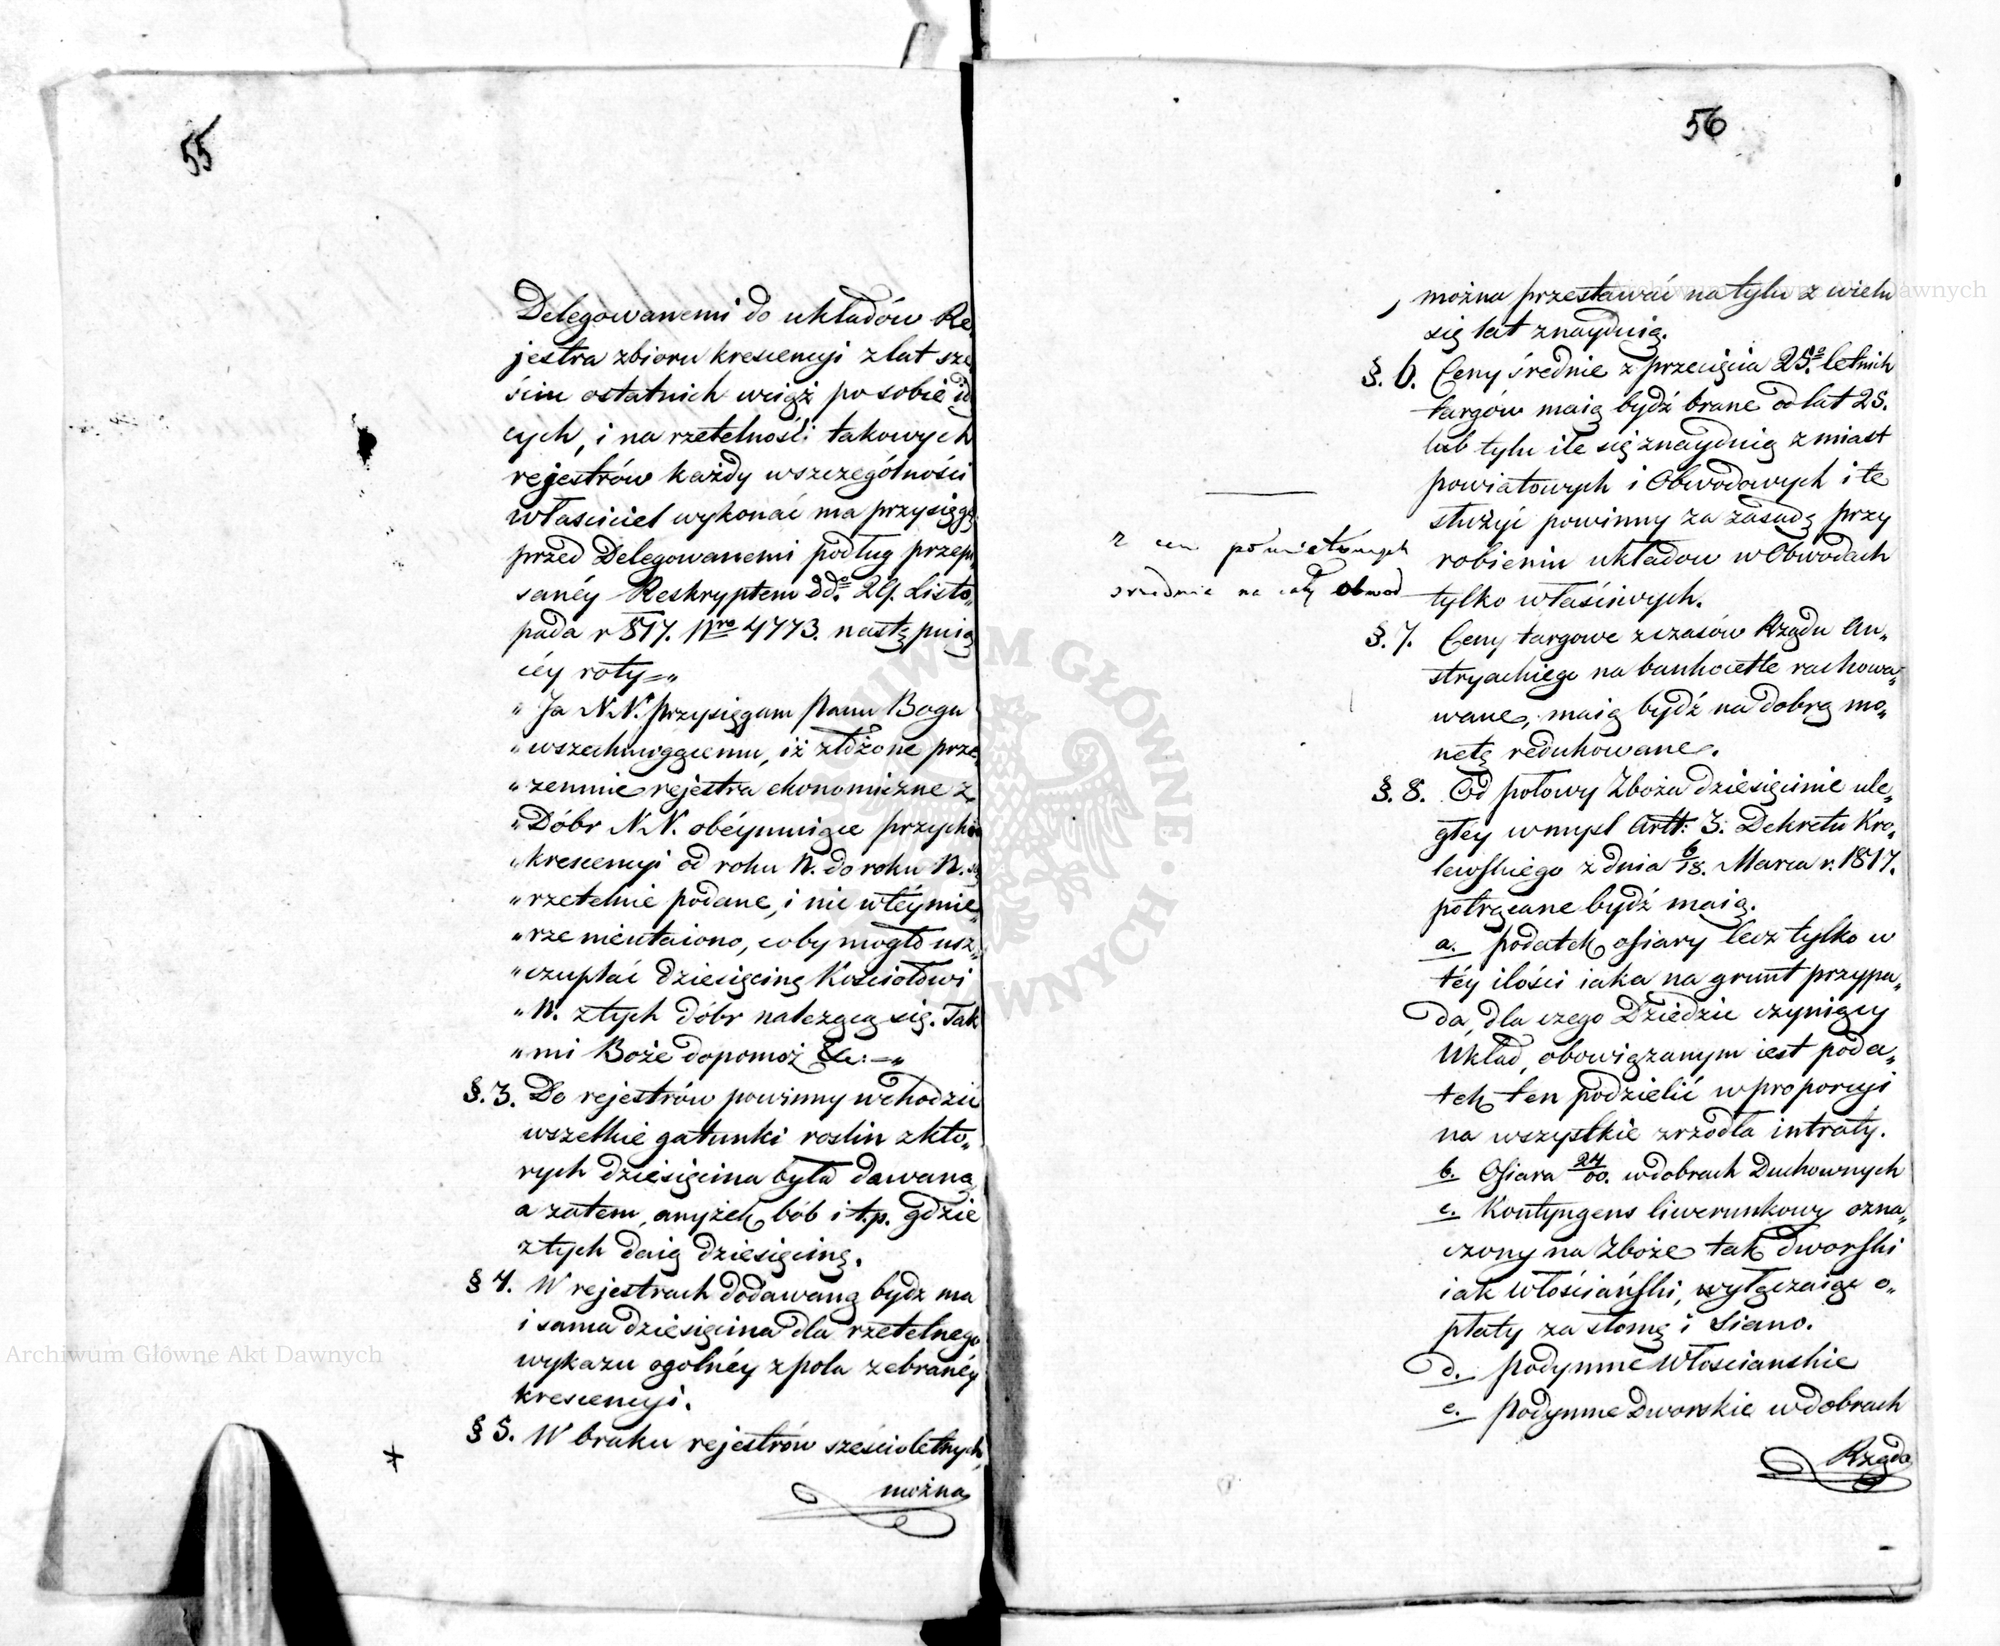 55
Delegowanemi do układów Re-
jestra zbioru krescencyi z lat sze-
ściu ostatnich wciąż po sobie id
cych, i na rzetelność takowych
rejestrów każdy wszczególności
właściciel wykonać ma przysięgę
przed Delegowanemi podług przepi
sanéy Reskryptem dd.o 29. Listo„
pada r 817. Nro 4773. następuią
céy roty =„
„ Ja N.N. przysięgam Panu Bogu
„ wszechmogącemu, iż złożone prze
„ zemnie rejestra ekonomiczne z
„ Dóbr N.N. obéymuiące przychód
„ krescencyi od roku N. do roku N. są
„ rzetelnie podane, i nic w téy mie
„ rze nieutaiono, coby mogło usz
„ czuplać dziesięcinę Kościołowi
„ N. z tych dóbr należącą się. Tak
„ mi Boże dopomoż &c: =„
§. 3. Do rejestrów powinny wchodzić
wszelkie gatunki roślin z kto„
rych dziesięcina była dawaną
a zatem, anyżek, bób i t.p. gdzie
z tych daią dziesięcinę.
§ 4. W rejestrach dodawaną bydz ma
i sama dziesięcina dla rzetelnego
wykazu ogólnéy z pola zebranéy
krescencyi.
§ 5. W braku rejestrów sześcioletnych,
można
56
można przestawać na tylu z wielu
się lat znayduią.
§. 6. Ceny średnie z przecięcia 25.o letnich
targów maią bydź brane od lat 25.
lub tylu ile się znayduią z miast
powiatowych i Obwodowych i te
służyć powinny za zasadę przy
robieniu układow w Obwodach
tylko właściwych.
z cen
srednia na cały obwod
§. 7. Ceny targowe z czasów Rządu Au„
stryackiego na bankocetle rachowa„
wane, maią bydź na dobrą mo„
netę redukowane.
§. 8. Od połowy Zboża dziesięcinie ule„
głéy wmysl Artt: 3. Dekretu Kró„
lewskiego z dnia 6/18. Marca r. 1817.
potrącane bydź maią.
a. podatek ofiary lecz tylko w
téy ilości iaka na grunt przypa„
da, dla czego Dziedzic czyniący
Układ, obowiązanym iest poda„
tek ten podzielić w proporcyi
na wszystkie zrzódła intraty.
b. Ofiara 24/00. w dobrach Duchownych
c. Kontyngens liwerunkowy ozna„
czony na Zboże tak dworski
iak włościański, wyłączaiąc o„
płaty za słomę i Siano.
d. podymne Włościanskie
e. podymne Dworskie w dobrach
Rządo
Archiwum Główne Akt Dawnych